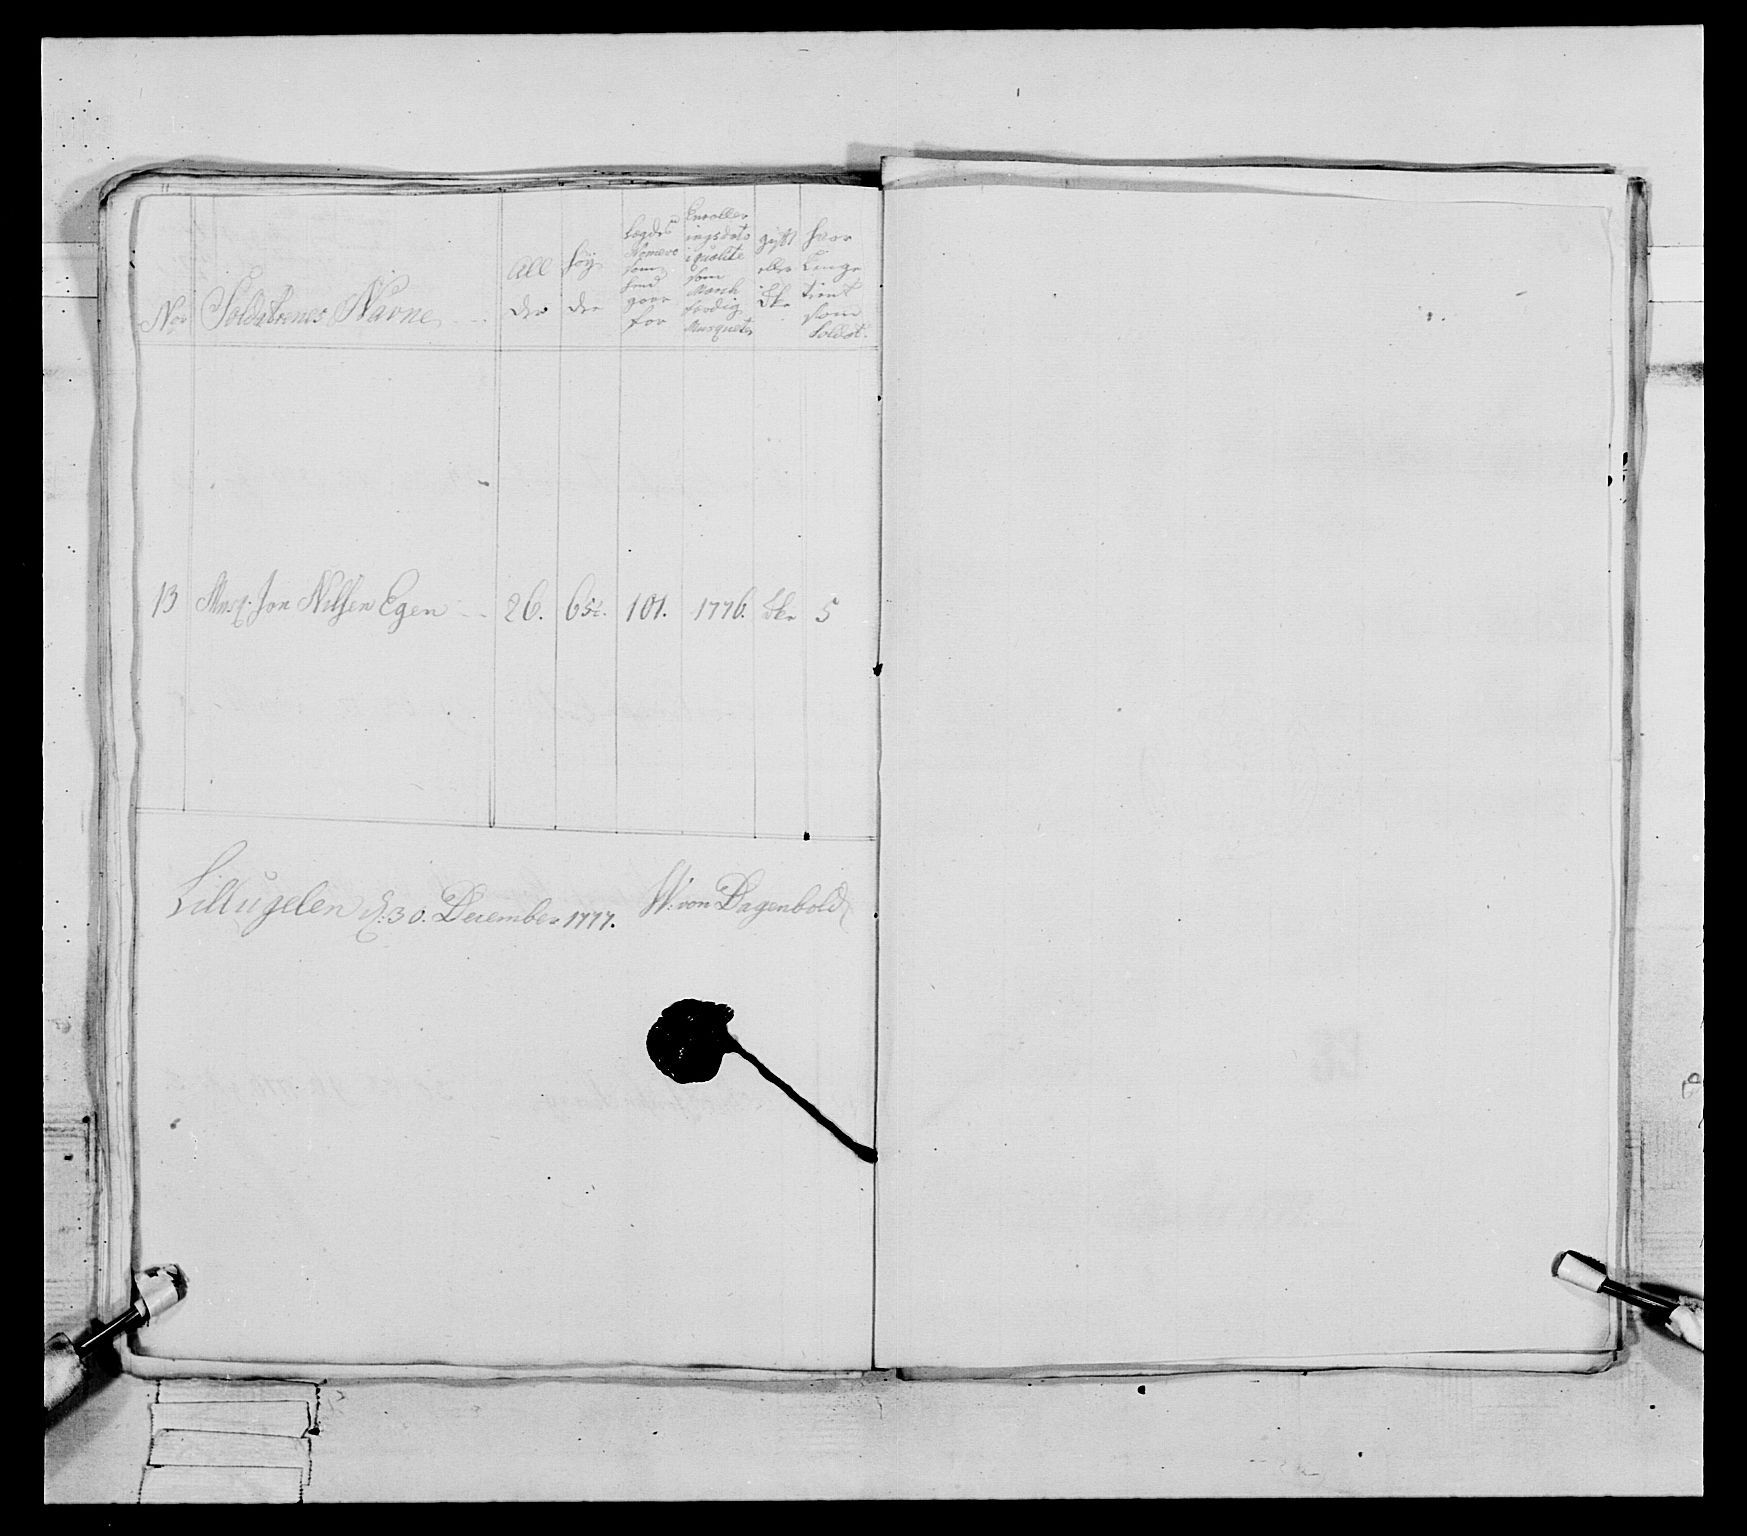 No: Soldaternes Navne
All der
Høy de
Lægdes Numero som hend goer for
Enrollerings dato i qualite som March færdig Musqueter
gift eller Ike
hvor Længe tient som Soldat.
13 Musq: Jon Nilsen Egen 26. 65 101. 1776. Ike 5
Lillugelen d: 30. December 1777. W: von Dagenbold